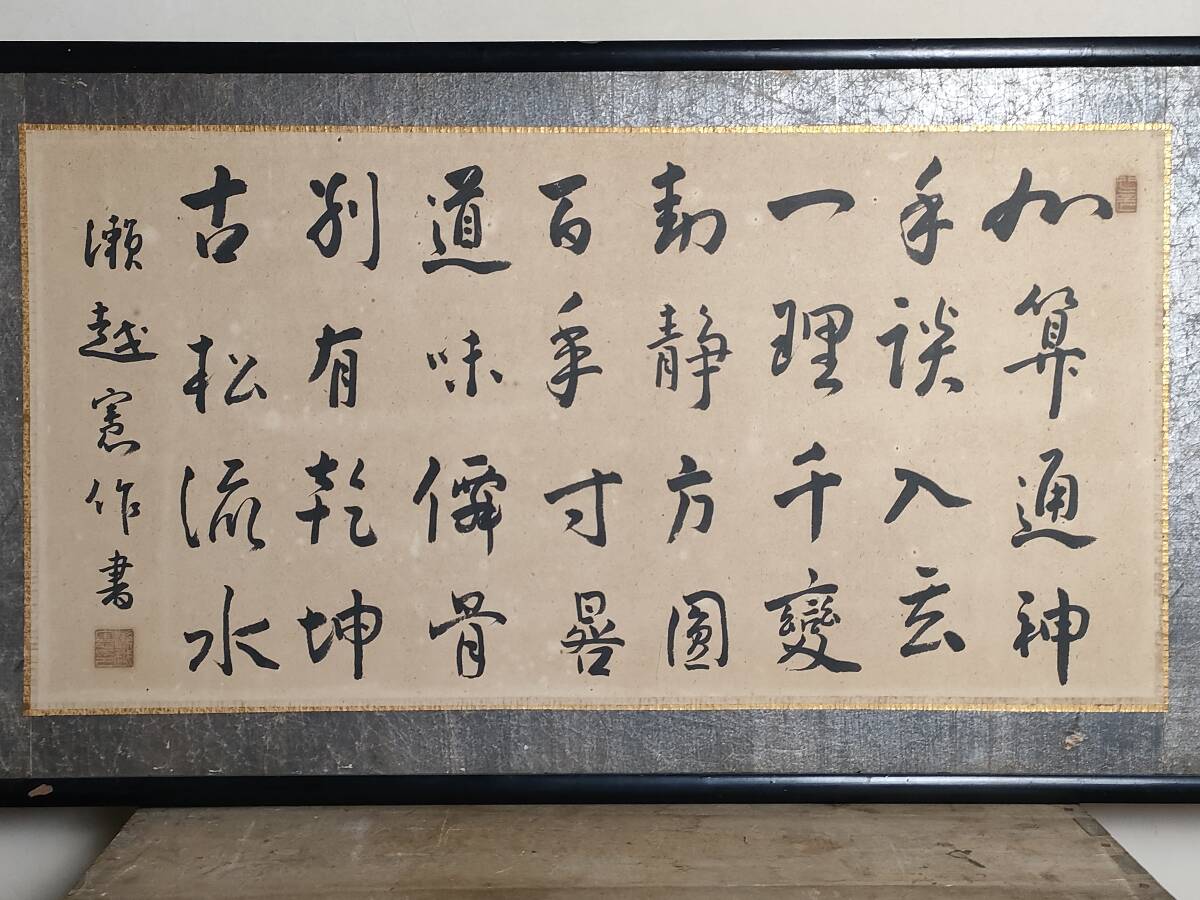 如算通神
手談入玄
一理千變
動静方圓
百年寸晷
道味僊骨
別有乾坤
古松流水
瀬越憲作書